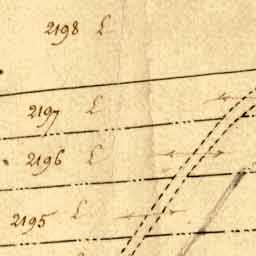 2198 L
2197 L
2196 L
2195 L